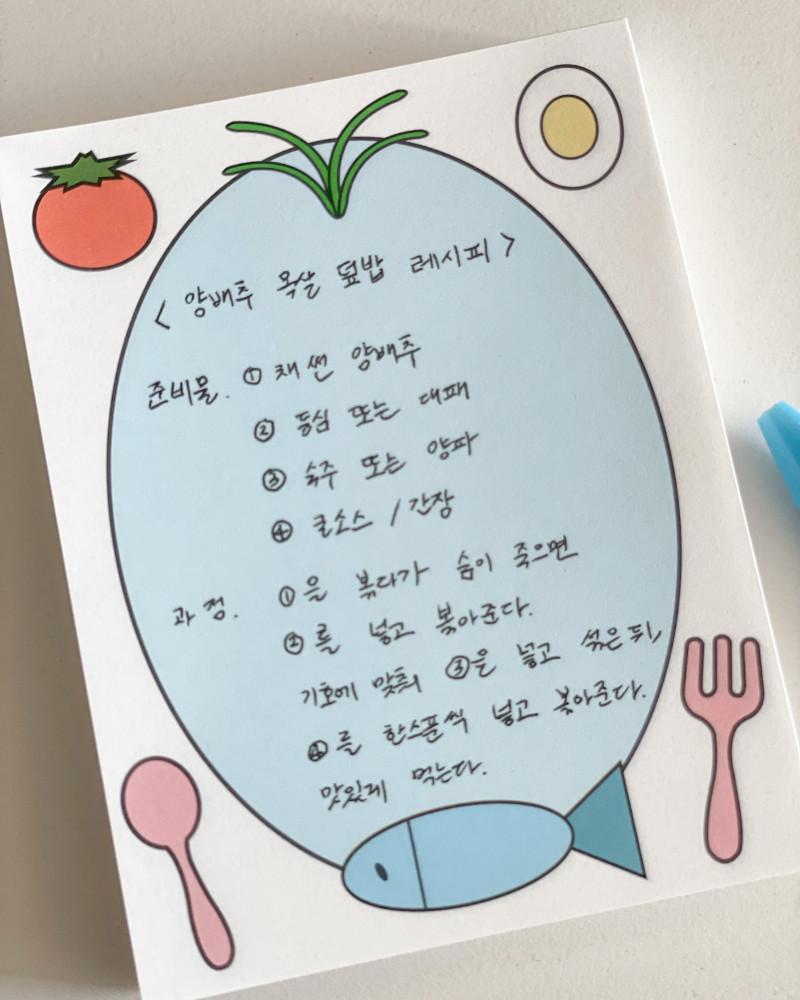 < 양배추 목살 덮밥 레시피 >
준비물. ① 채 썬 양배추
② 등심 또는 대패
③ 숙주 또는 양파
④ 굴소스 / 간장
과정. ①을 볶다가 숨이 죽으면
②를 넣고 볶아준다.
기호에 맞춰 ③을 넣고 섞은 뒤,
④를 한스푼씩 넣고 볶아준다.
맛있게 먹는다.